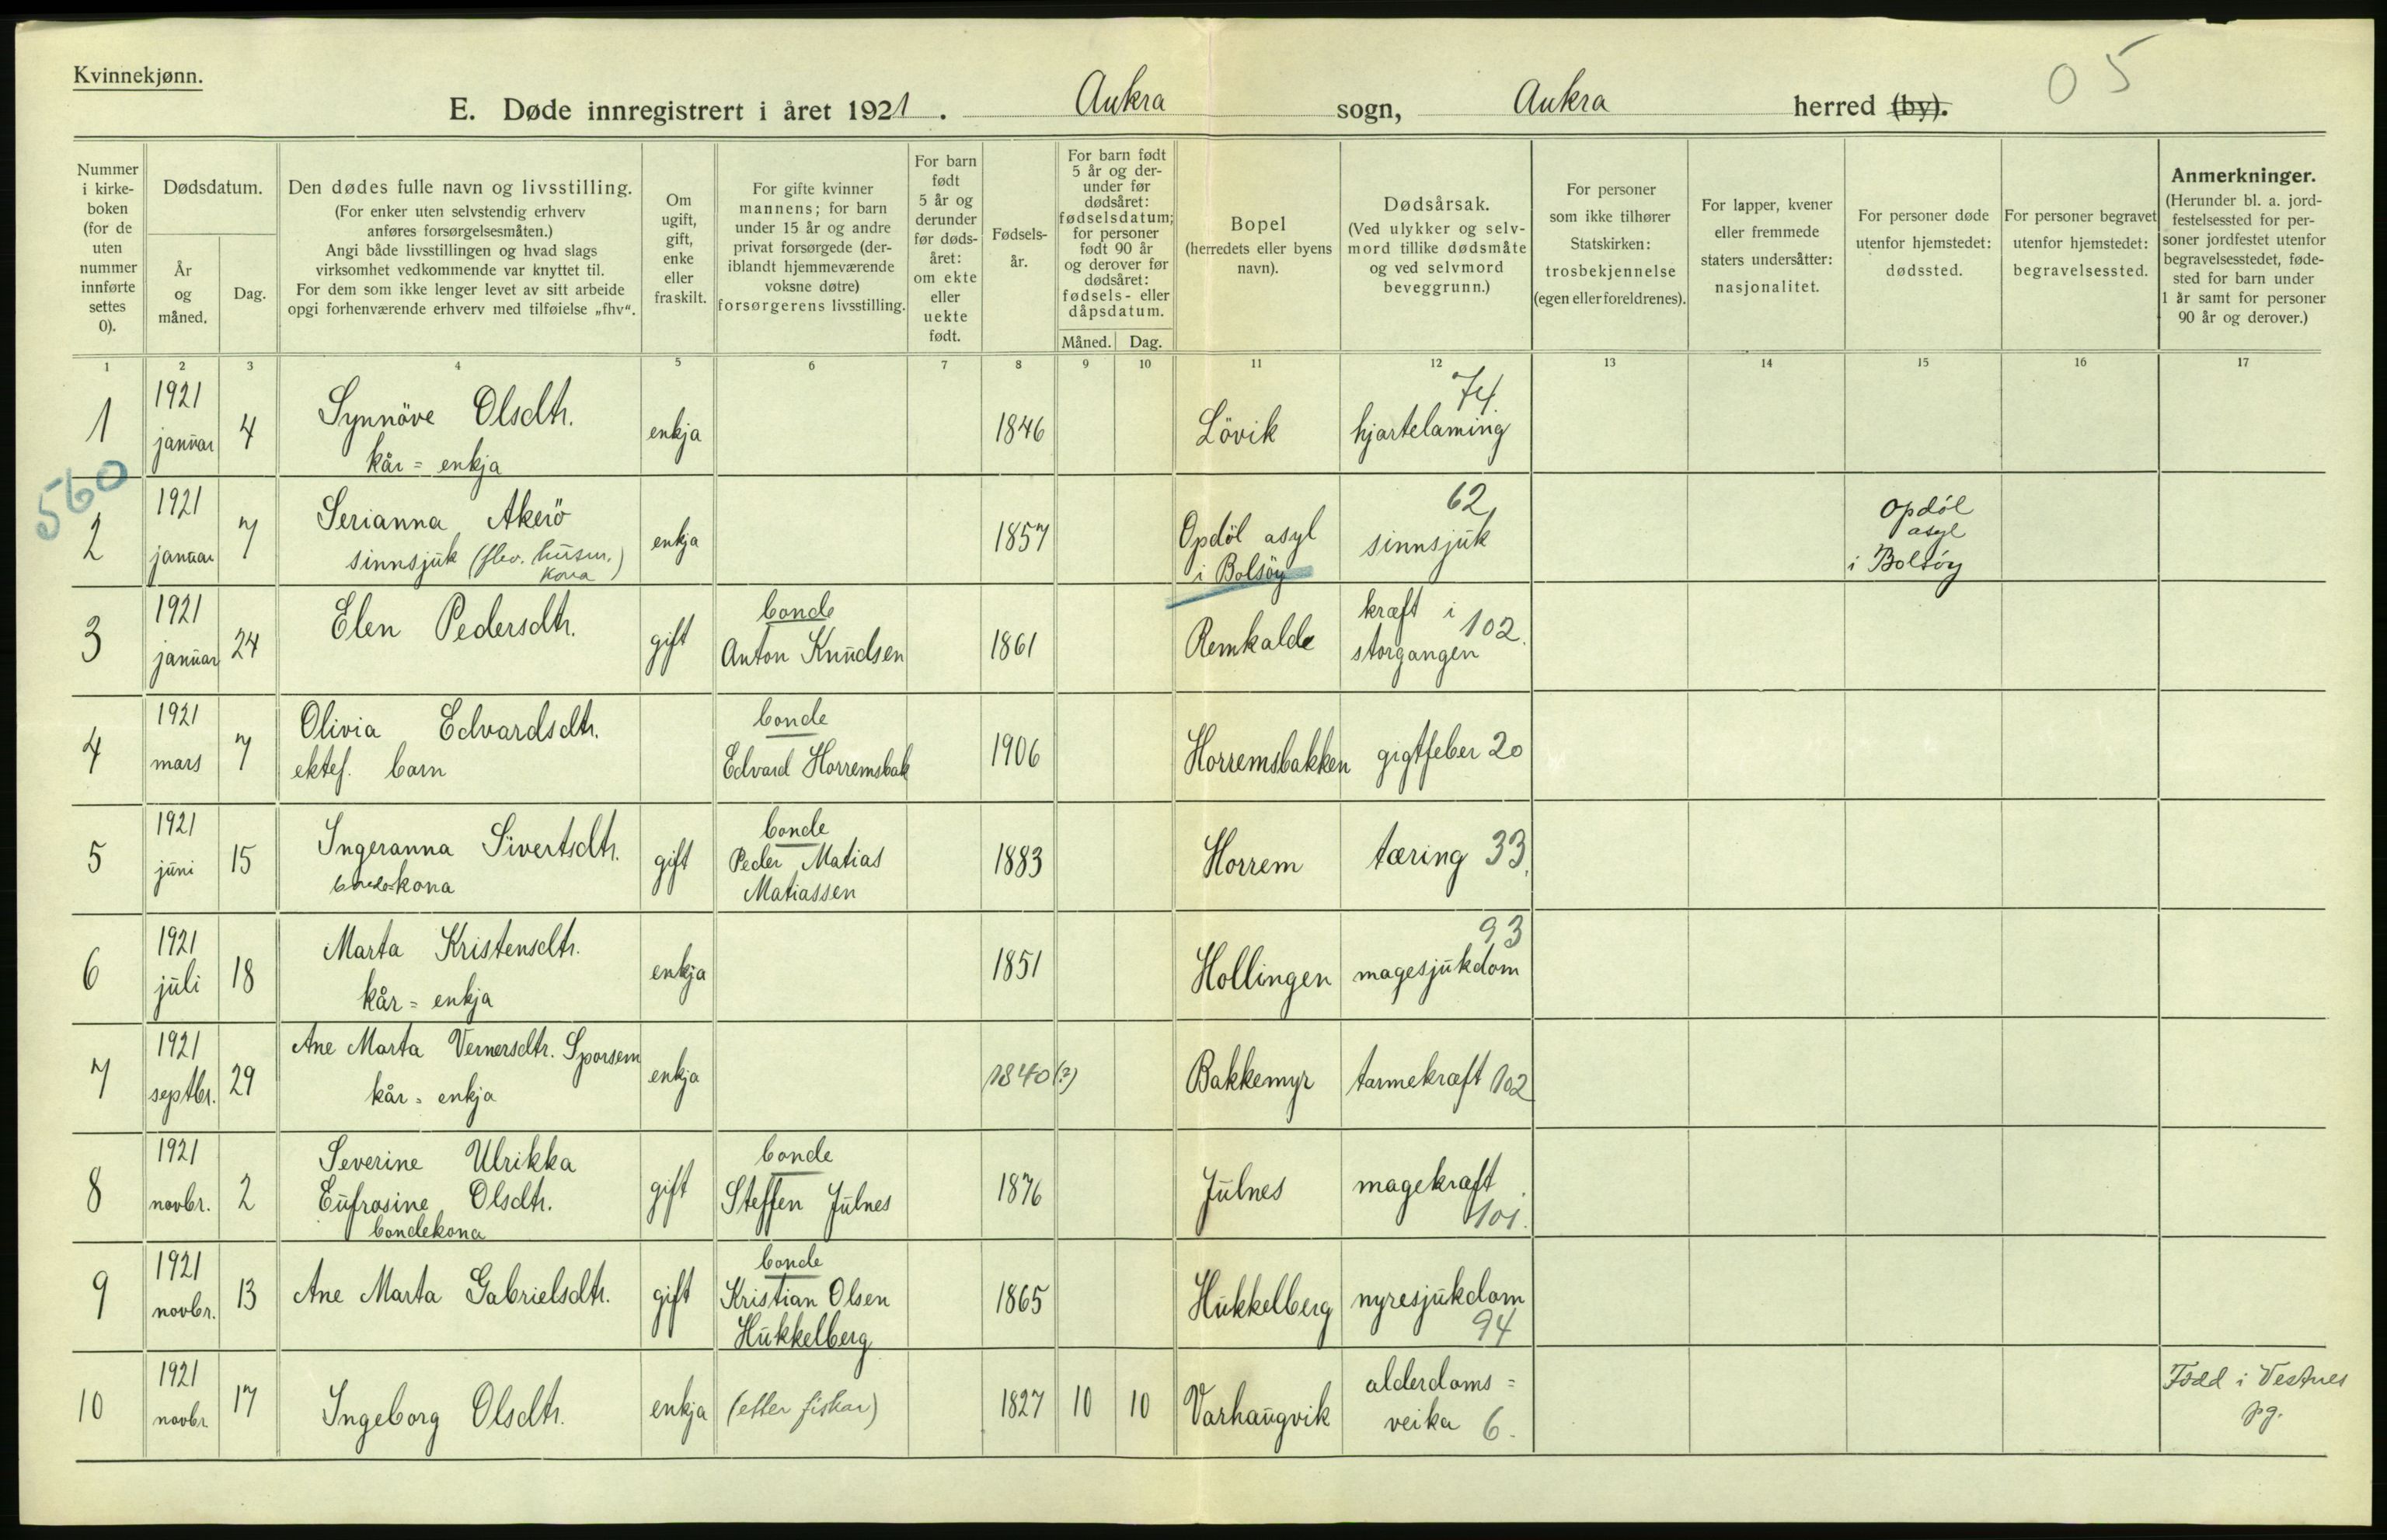 Kvinnekjønn.
E. Døde innregistrert i året 1921. Aukra sogn, Aukra herred (by).
05
Nummer i kirkeboken (for de uten nummer innførte settes 0).
Dødsdatum.
År og måned.
Dag.
Den dødes fulle navn og livsstilling.
(For enker uten selvstendig erhverv anføres forsørgelsesmåten.)
Angi både livsstillingen og hvad slags virksomhet vedkommende var knyttet til.
For dem som ikke lenger levet av sitt arbeide opgi forhenværende erhverv med tilføielse „fhv“.
Om ugift, gift, enke eller fraskilt.
For gifte kvinner mannens; for barn under 15 år og andre privat forsørgede (deriblandt hjemmeværende voksne døtre) forsørgerens livsstilling.
For barn født 5 år og derunder før dødsåret: om ekte eller uekte født.
Fødselsår.
For barn født 5 år og derunder før dødsåret: fødselsdatum; for personer født 90 år og derover før dødsåret: fødsels- eller dåpsdatum.
Måned. Dag.
Bopel
(herredets eller byens navn).
Dødsårsak.
(Ved ulykker og selvmord tillike dødsmåte og ved selvmord beveggrunn.)
For personer som ikke tilhører Statskirken: trosbekjennelse (egen eller foreldrenes).
For lapper, kvener eller fremmede staters undersåtter: nasjonalitet.
For personer døde utenfor hjemstedet: dødssted.
For personer begravet utenfor hjemstedet: begravelsessted.
Anmerkninger.
(Herunder bl. a. jordfestelsessted for personer jordfestet utenfor begravelsesstedet, fødested for barn under 1 år samt for personer 90 år og derover.)
1 2 3 4 5 6 7 8 9 10 11 12 13 14 15 16 17
1 1921 januar 4 Synnöve Olsdtr. kår = enkja enkja 1846 Lövik hjartelaming 74.
560
2 1921 januar 7 Serianna Akerö sinnsjuk (flev. husm. kona) enkja 1857 Opdöl asyl i Bolsöy sinnsjuk 62 Opdöl asyl i Bolsöy
3 1921 januar 24 Elen Pedersdtr. gift bonde Anton Knudsen 1861 Remkalde kræft i storgangen 102.
4 1921 mars 7 Olivia Edvardsdtr. ektef. barn bonde Edvard Horremsbak 1906 Horremsbakken gigtfeber 20
5 1921 juni 15 Ingeranna Sivertsdtr. bondekona gift bonde Peder Matias Matiassen 1883 Horrem tæring 33.
6 1921 juli 18 Marta Kristensdtr. kår = enkja enkja 1851 Hollingen magesjukdom 93
7 1921 septbr. 29 Ane Marta Vernersdtr. Sporsem kår = enkja enkja 1840 (?) Bakkemyr tarmekræft 102
8 1921 novbr. 2 Severine Ulrikka Eufrosine Olsdtr. bondekona gift bonde Steffen Julnes 1876 Julnes magekræft 101.
9 1921 novbr. 13 Ane Marta Gabrielsdtr. gift bonde Kristian Olsen Hukkelberg 1865 Hukkelberg nyresjukdom 94
10 1921 novbr 17 Ingeborg Olsdtr. enkja (efter fiskar) 1827 10 10 Varhaugvik alderdoms = veika 6. Född i Vestnes pg.